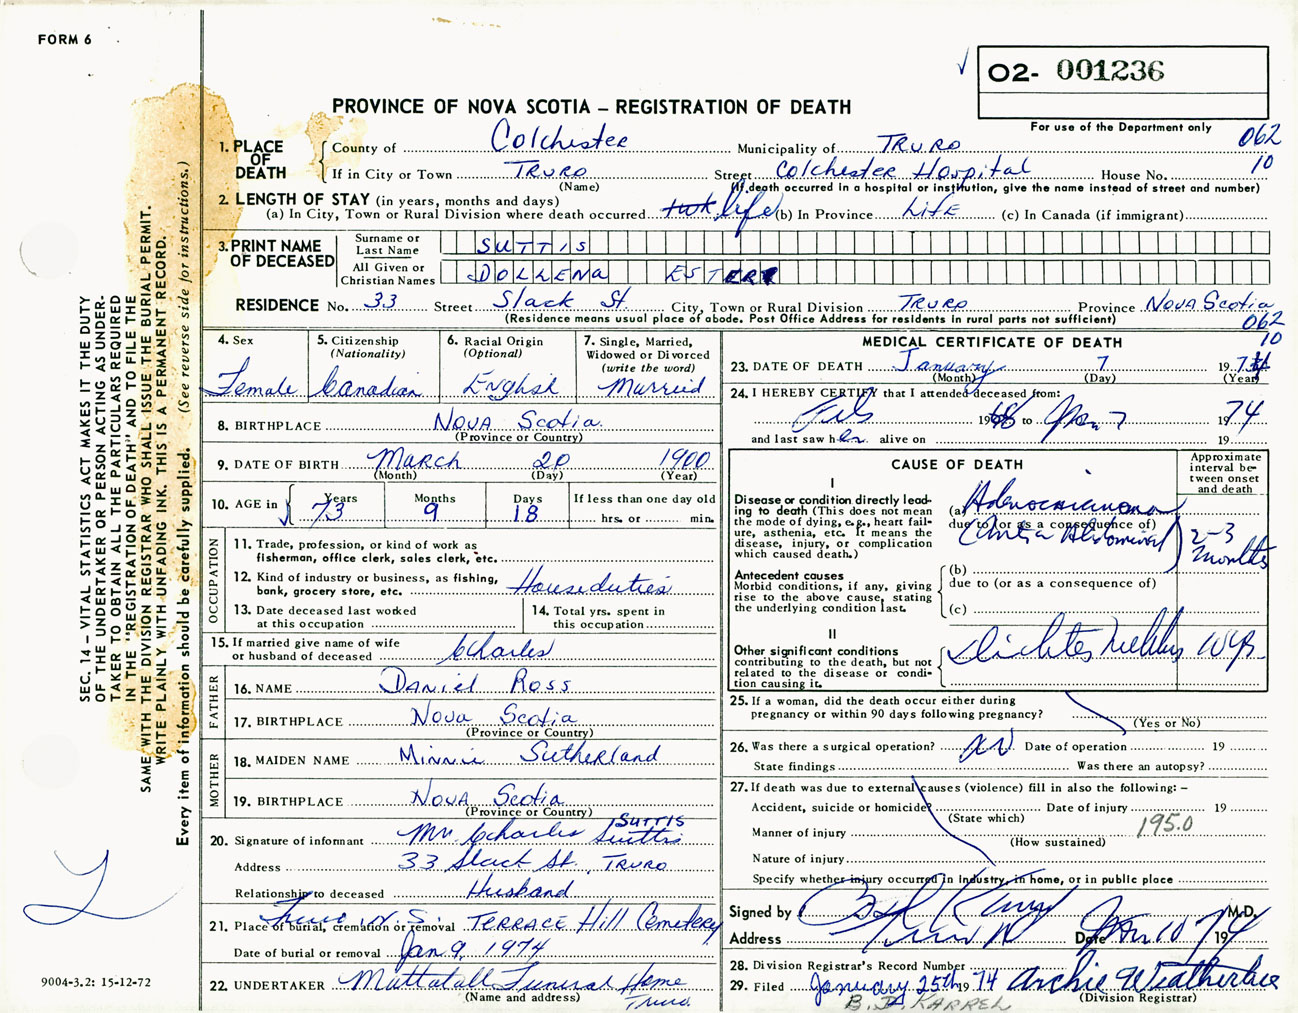 FORM 6
O2- 001236
PROVINCE OF NOVA SCOTIA – REGISTRATION OF DEATH
For use of the Department only
062
10
1. PLACE OF DEATH
County of Colchester Municipality of TRURO
If in City or Town TRURO Street Colchester Hospital House No.
(Name) (If death occurred in a hospital or institution, give the name instead of street and number)
2. LENGTH OF STAY (in years, months and days)
(a) In City, Town or Rural Division where death occurred life (b) In Province LIFE (c) In Canada (if immigrant)
3. PRINT NAME OF DECEASED
Surname or Last Name SUTTIS
All Given or Christian Names DOLLENA ESTER
RESIDENCE No. 33 Street Slack St. City, Town or Rural Division TRURO Province NOVA Scotia
(Residence means usual place of abode. Post Office Address for residents in rural parts not sufficient)
062
10
4. Sex
Female
5. Citizenship
(Nationality)
Canadian
6. Racial Origin
(Optional)
English
7. Single, Married,
Widowed or Divorced
(write the word)
Married
8. BIRTHPLACE NOVA Scotia
(Province or Country)
9. DATE OF BIRTH March 20 1900
(Month) (Day) (Year)
10. AGE in Years Months Days If less than one day old
73 9 18 hrs. or min.
OCCUPATION
11. Trade, profession, or kind of work as
fisherman, office clerk, sales clerk, etc.
12. Kind of industry or business, as fishing,
bank, grocery store, etc. Houseduties
13. Date deceased last worked
at this occupation
14. Total yrs. spent in
this occupation
15. If married give name of wife
or husband of deceased Charles
FATHER
16. NAME DANIEL ROSS
17. BIRTHPLACE NOVA Scotia
(Province or Country)
MOTHER
18. MAIDEN NAME MINNIE Sutherland
19. BIRTHPLACE NOVA Scotia
(Province or Country)
SUTTIS
20. Signature of informant Mr. Charles Suttis
Address 33 Slack St. TRURO
Relationship to deceased Husband
21. Place of burial, cremation or removal Truro N.S. TERRACE Hill Cemetery
Date of burial or removal Jan 9, 1974
22. UNDERTAKER Mattatall Funeral Home
(Name and address) Truro
MEDICAL CERTIFICATE OF DEATH
23. DATE OF DEATH January 7 1974
(Month) (Day) (Year)
24. I HEREBY CERTIFY that I attended deceased from:
Feb 1968 to Jan 7 1974
and last saw her alive on 19
CAUSE OF DEATH
Approximate interval between onset and death
I
Disease or condition directly leading to death (This does not mean the mode of dying, e.g., heart failure, asthenia, etc. It means the disease, injury, or complication which caused death.)
(a) Adenocarcinoma
due to (or as a consequence of)
Abdominal
2-3
months
Antecedent causes
Morbid conditions, if any, giving rise to the above cause, stating the underlying condition last.
(b)
due to (or as a consequence of)
(c)
II
Other significant conditions
contributing to the death, but not related to the disease or condition causing it.
10 yrs
25. If a woman, did the death occur either during
pregnancy or within 90 days following pregnancy?
(Yes or No)
26. Was there a surgical operation? Date of operation 19
State findings Was there an autopsy?
27. If death was due to external causes (violence) fill in also the following: –
Accident, suicide or homicide? Date of injury 19
(State which)
195.0
Manner of injury
(How sustained)
Nature of injury
Specify whether injury occurred in Industry, in home, or in public place
Signed by M.D.
Address Truro Date Jan 10 1974
28. Division Registrar's Record Number
29. Filed January 25th 1974 Archie Weatherbee
(Division Registrar)
B. D. KARREL
SEC. 14 – VITAL STATISTICS ACT MAKES IT THE DUTY
OF THE UNDERTAKER OR PERSON ACTING AS UNDER-
TAKER TO OBTAIN ALL THE PARTICULARS REQUIRED
IN THE "REGISTRATION OF DEATH" AND TO FILE THE
SAME WITH THE DIVISION REGISTRAR WHO SHALL ISSUE THE BURIAL PERMIT.
WRITE PLAINLY WITH UNFADING INK. THIS IS A PERMANENT RECORD.
Every item of information should be carefully supplied. (See reverse side for instructions.)
9004-3.2: 15-12-72